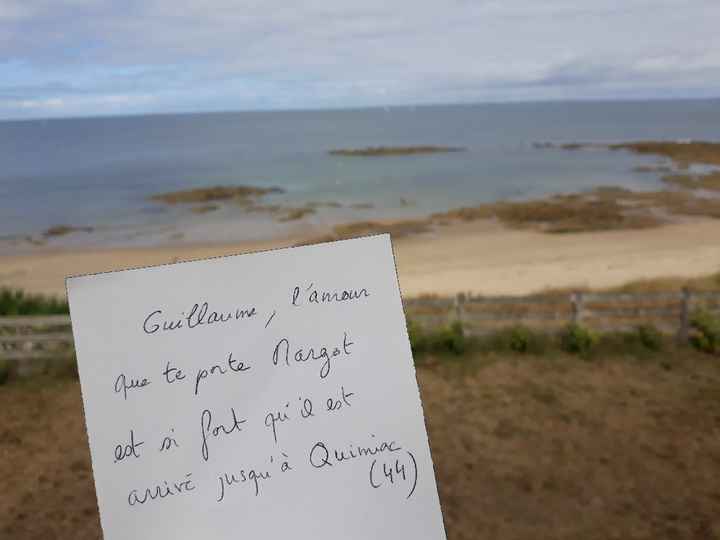 Guillaume, l'amour
que te porte Margot
est si fort qu'il est
arrivé jusqu'à Quimiac
(44)